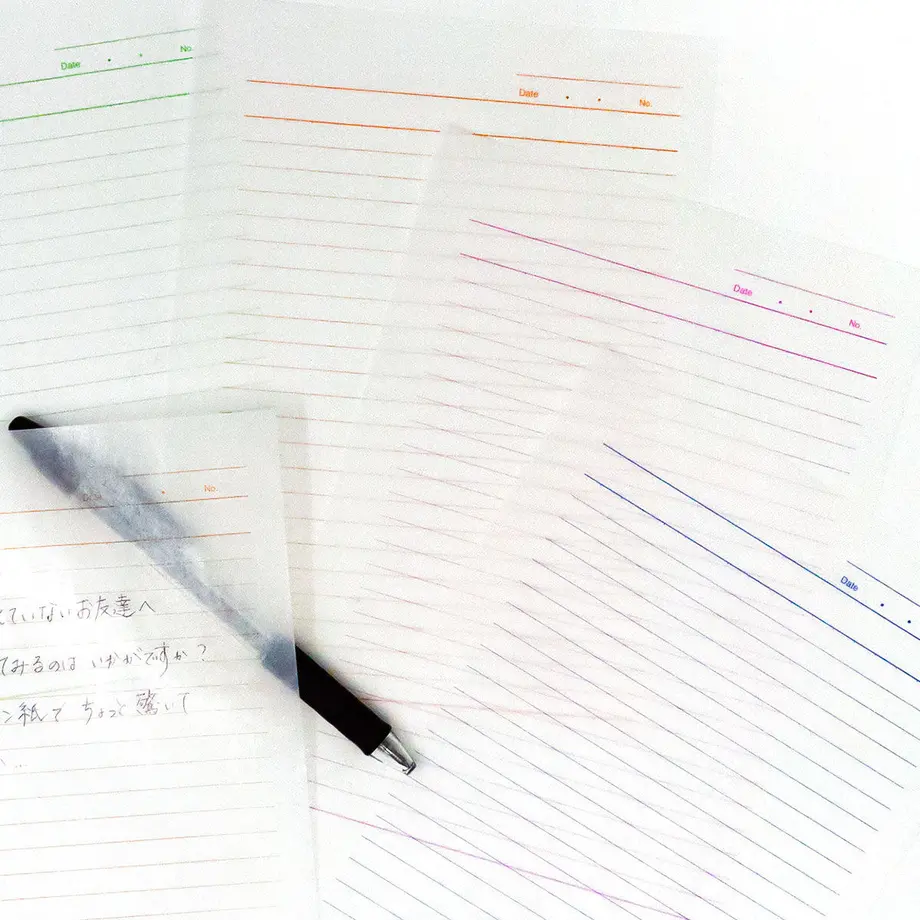 Date ・ ・ No.
Date ・ ・ No.
Date ・ ・ No.
Date ・ ・
Date ・ No.
ていないお友達へ
てみるのは いかがですか？
ン紙で ちょっと 驚いて
...